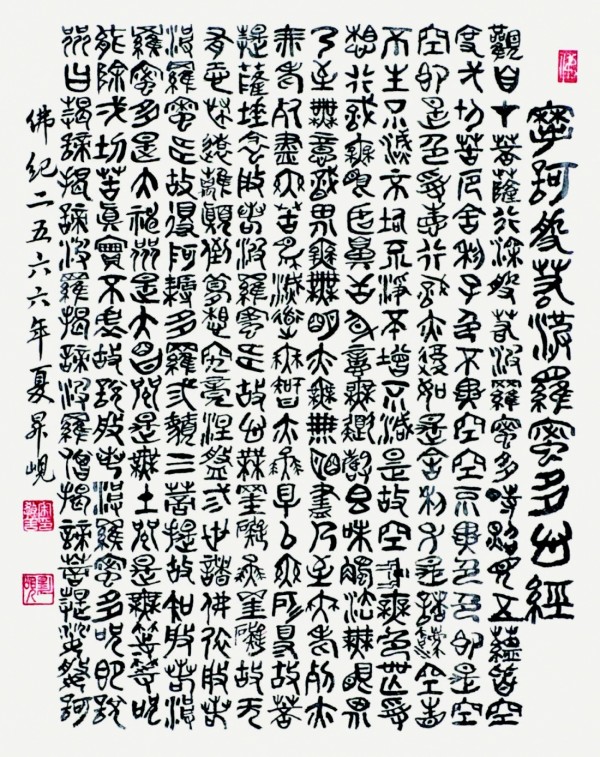 摩訶般若波羅蜜多心經
觀自在菩薩行深般若波羅蜜多時照見五蘊皆空
度一切苦厄舍利子色不異空空不異色色即是空
空即是色受想行識亦復如是舍利子是諸法空相
不生不滅不垢不淨不增不減是故空中無色無受
想行識無眼耳鼻舌身意無色聲香味觸法無眼界
乃至無意識界無無明亦無無明盡乃至無老死亦
無老死盡無苦集滅道無智亦無得以無所得故菩
提薩埵依般若波羅蜜多故心無罣礙無罣礙故无
有恐怖遠離顛倒夢想究竟涅槃三世諸佛依般若
波羅蜜多故得阿耨多羅三藐三菩提故知般若波
羅蜜多是大神咒是大明咒是無上咒是無等等咒
能除一切苦真實不虛故說般若波羅蜜多呪即說
咒曰揭諦揭諦波羅揭諦波羅僧揭諦菩提娑婆訶
佛紀二五六六年夏昇峴